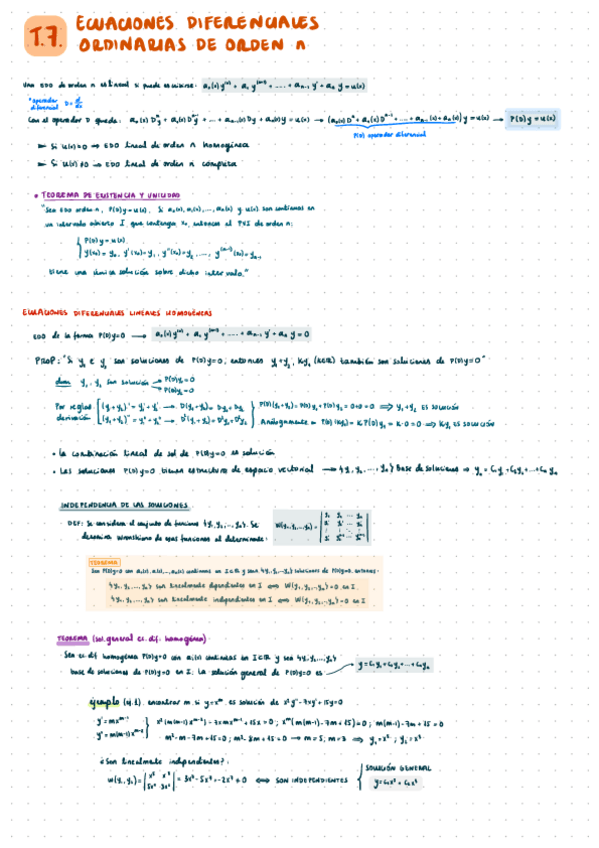 T.7. ECUACIONES DIFERENCIALES
ORDINARIAS DE ORDEN n
Una EDO de orden n es lineal si puede escribirse: a₀(x)y⁽ⁿ⁾ + a₁ y⁽ⁿ⁻¹⁾ + .... + aₙ₋₁ y' + aₙ y = u(x)
*operador diferencial D = d/dx
Con el operador D queda: a₀(x) Dⁿy + a₁(x) Dⁿ⁻¹y + ... + aₙ₋₁(x) Dy + aₙ(x) y = u(x) → (a₀(x)Dⁿ + a₁(x)Dⁿ⁻¹ + ... + aₙ₋₁(x) + aₙ(x)) y = u(x) → P(D) y = u(x)
P(D) operador diferencial
Si u(x) = 0 ⇒ EDO lineal de orden n homogénea
Si u(x) ≠ 0 ⇒ EDO lineal de orden n completa
• TEOREMA DE EXISTENCIA Y UNICIDAD
"Sea EDO orden n, P(D)y = u(x). Si a₀(x), a₁(x), ..., aₙ(x) y u(x) son continuas en
un intervalo abierto I que contenga x₀, entonces el PVI de orden n:
P(D)y = u(x)
y(x₀) = y₀, y'(x₀) = y₁, y''(x₀) = y₂, ..., y⁽ⁿ⁻¹⁾(x₀) = yₙ₋₁
tiene una única solución sobre dicho intervalo."
ECUACIONES DIFERENCIALES LINEALES HOMOGÉNEAS
EDO de la forma P(D)y = 0 → a₀(x)y⁽ⁿ⁾ + a₁ y⁽ⁿ⁻¹⁾ + .... + aₙ₋₁ y' + aₙ y = 0
PROP: "Si y₁ e y₂ son soluciones de P(D)y = 0, entonces y₁+y₂, Ky₁ (K∈ℝ) también son soluciones de P(D)y = 0"
dem: y₁, y₂ son solución → P(D)y₁ = 0
P(D)y₂ = 0
Por reglas derivación [(y₁+y₂)' = y₁' + y₂' → D(y₁+y₂) = Dy₁ + Dy₂ } P(D)(y₁+y₂) = P(D)y₁ + P(D)y₂ = 0+0 = 0 ⇒ y₁+y₂ ES SOLUCIÓN
(y₁+y₂)'' = y₁'' + y₂'' → D²(y₁+y₂) = D²y₁ + D²y₂ Análogamente → P(D)(Ky₁) = K·P(D)y₁ = K·0 = 0 ⇒ Ky₁ ES SOLUCIÓN
• La combinación lineal de sol de P(D)y = 0 es solución
• Las soluciones P(D)y = 0 tienen estructura de espacio vectorial → {y₁, y₂, ..., yₙ} Base de soluciones ⇒ y = C₁y₁ + C₂y₂ + ... + Cₙyₙ
INDEPENDENCIA DE LAS SOLUCIONES
DEF: Se considera el conjunto de funciones {y₁, y₂, ..., yₙ}. Se
denomina wronskiano de esas funciones al determinante:
W(y₁, y₂, ..., yₙ) =
TEOREMA
Sea P(D)y = 0 con a₀(x), a₁(x), ..., aₙ(x) continuas en I⊂ℝ y sean {y₁, ..., yₙ} soluciones de P(D)y = 0, entonces:
{y₁, y₂, ..., yₙ} son linealmente dependientes en I ⇔ W(y₁, y₂, ..., yₙ) = 0 en I.
{y₁, y₂, ..., yₙ} son linealmente independientes en I ⇔ W(y₁, y₂, ..., yₙ) ≠ 0 en I.
TEOREMA (sol. general ec. dif. homogénea)
Sea ec. dif homogénea P(D)y = 0 con aᵢ(x) continuas en I⊂ℝ y sean {y₁, y₂, ..., yₙ}
base de soluciones de P(D)y = 0 en I. La solución general de P(D)y = 0 es → y = C₁y₁ + C₂y₂ + ... + Cₙyₙ
ejemplo (ej. 1). encontrar m. si y = xᵐ es solución de x²y'' - 7xy' + 15y = 0
y' = mxᵐ⁻¹ } x²(m(m-1)xᵐ⁻²) - 7x mxᵐ⁻¹ + 15xᵐ = 0 ; xᵐ(m(m-1) - 7m + 15) = 0 ; m(m-1) - 7m + 15 = 0
y'' = m(m-1)xᵐ⁻² m² - m - 7m + 15 = 0 ; m² - 8m + 15 = 0 → m = 5, m = 3 ⇒ y₁ = x⁵ ; y₂ = x³
¿Son linealmente independientes?:
W(y₁, y₂) = |x⁵ x³ 5x⁴ 3x²| = 3x⁷ - 5x⁷ = -2x⁷ ≠ 0 ⇔ SON INDEPENDIENTES
SOLUCIÓN GENERAL
y = C₁x⁵ + C₂x³